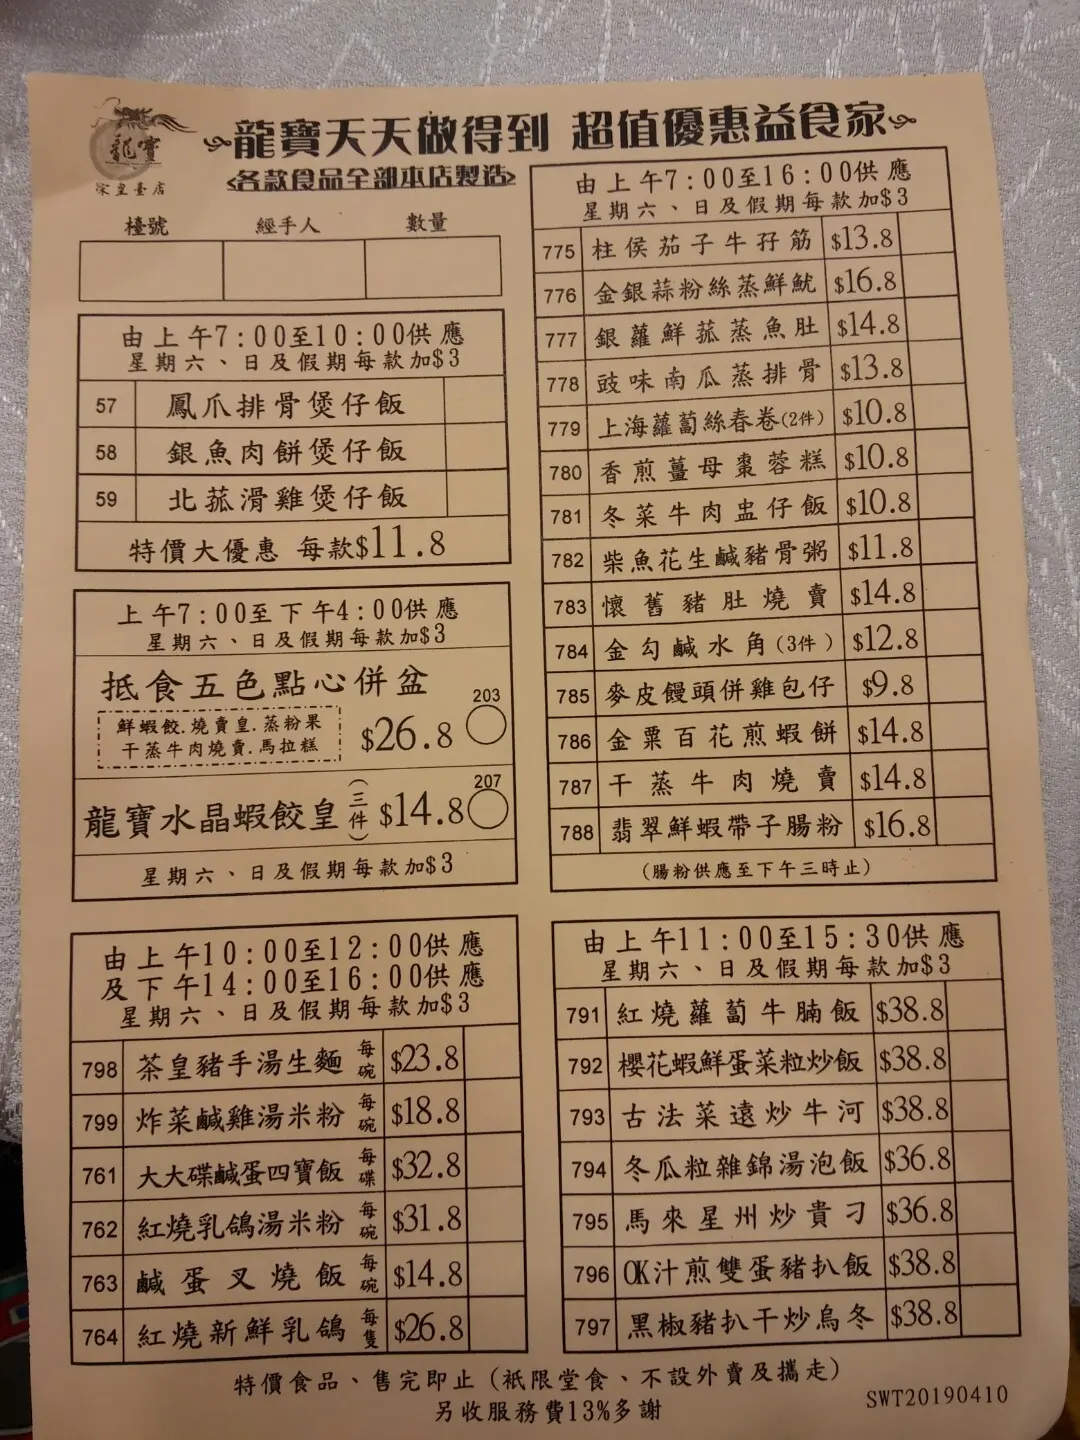 龍寶
宋皇臺店
龍寶天天做得到 超值優惠益食家
<各款食品全部本店製造>
檯號 經手人 數量
由上午7:00至10:00供應
星期六、日及假期每款加$3
57 鳳爪排骨煲仔飯
58 銀魚肉餅煲仔飯
59 北菰滑雞煲仔飯
特價大優惠 每款$11.8
上午7:00至下午4:00供應
星期六、日及假期每款加$3
抵食五色點心併盆 203
鮮蝦餃.燒賣皇.蒸粉果
干蒸牛肉燒賣.馬拉糕
$26.8
龍寶水晶蝦餃皇(三件) $14.8 207
星期六、日及假期每款加$3
由上午10:00至12:00供應
及下午14:00至16:00供應
星期六、日及假期每款加$3
798 茶皇豬手湯生麵 每碗 $23.8
799 炸菜鹹雞湯米粉 每碗 $18.8
761 大大碟鹹蛋四寶飯 每碟 $32.8
762 紅燒乳鴿湯米粉 每碗 $31.8
763 鹹蛋叉燒飯 每碗 $14.8
764 紅燒新鮮乳鴿 每隻 $26.8
由上午7:00至16:00供應
星期六、日及假期每款加$3
775 柱侯茄子牛孖筋 $13.8
776 金銀蒜粉絲蒸鮮魷 $16.8
777 銀蘿鮮菰蒸魚肚 $14.8
778 豉味南瓜蒸排骨 $13.8
779 上海蘿蔔絲春卷(2件) $10.8
780 香煎薑母棗蓉糕 $10.8
781 冬菜牛肉盅仔飯 $10.8
782 柴魚花生鹹豬骨粥 $11.8
783 懷舊豬肚燒賣 $14.8
784 金勾鹹水角(3件) $12.8
785 麥皮饅頭併雞包仔 $9.8
786 金粟百花煎蝦餅 $14.8
787 干蒸牛肉燒賣 $14.8
788 翡翠鮮蝦帶子腸粉 $16.8
(腸粉供應至下午三時止)
由上午11:00至15:30供應
星期六、日及假期每款加$3
791 紅燒蘿蔔牛腩飯 $38.8
792 櫻花蝦鮮蛋菜粒炒飯 $38.8
793 古法菜遠炒牛河 $38.8
794 冬瓜粒雜錦湯泡飯 $36.8
795 馬來星州炒貴刁 $36.8
796 OK汁煎雙蛋豬扒飯 $38.8
797 黑椒豬扒干炒烏冬 $38.8
特價食品、售完即止(衹限堂食、不設外賣及攜走)
另收服務費13%多謝
SWT20190410